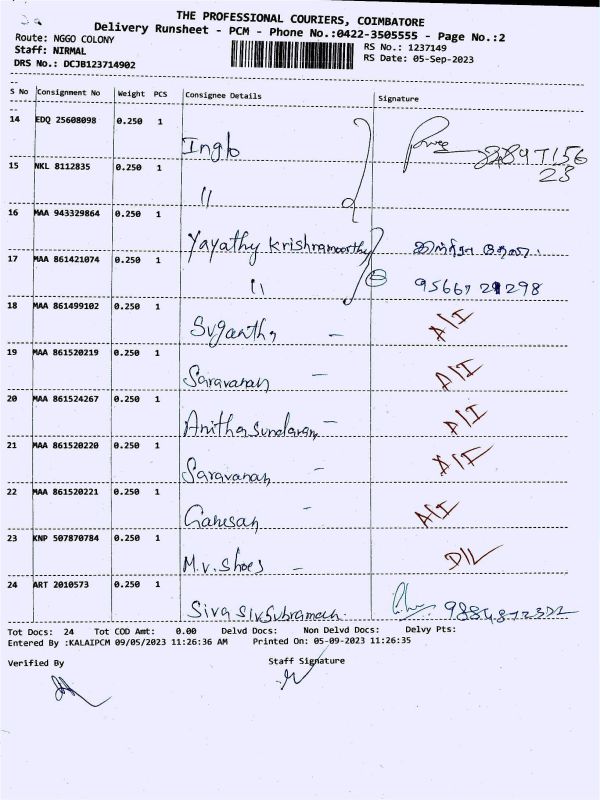 THE PROFESSIONAL COURIERS, COIMBATORE
Delivery Runsheet - PCM - Phone No.:0422-3505555 - Page No.:2
Route: NGGO COLONY
RS No.: 1237149
Staff: NIRMAL
RS Date: 05-Sep-2023
DRS No.: DCJB123714902
S No Consignment No Weight PCS Consignee Details Signature
14 EDQ 25608098 0.250 1
15 NKL 8112835 0.250 1
"
16 MAA 943329864 0.250 1
Yayathy Krishnamoorthy
17 MAA 861421074 0.250 1
"
18 MAA 861499102 0.250 1
Sugantha -
19 MAA 861520219 0.250 1
Saravanan -
20 MAA 861524267 0.250 1
Anitha sundaram -
21 MAA 861520220 0.250 1
Saravanan -
22 MAA 861520221 0.250 1
Ganesan - A/I
23 KNP 507870784 0.250 1
M.V. Shoes - D/L
24 ART 2010573 0.250 1
Siva
Tot Docs: 24 Tot COD Amt: 0.00 Delvd Docs: Non Delvd Docs: Delvy Pts:
Entered By :KALAIPCM 09/05/2023 11:26:36 AM Printed On: 05-09-2023 11:26:35
Verified By Staff Signature